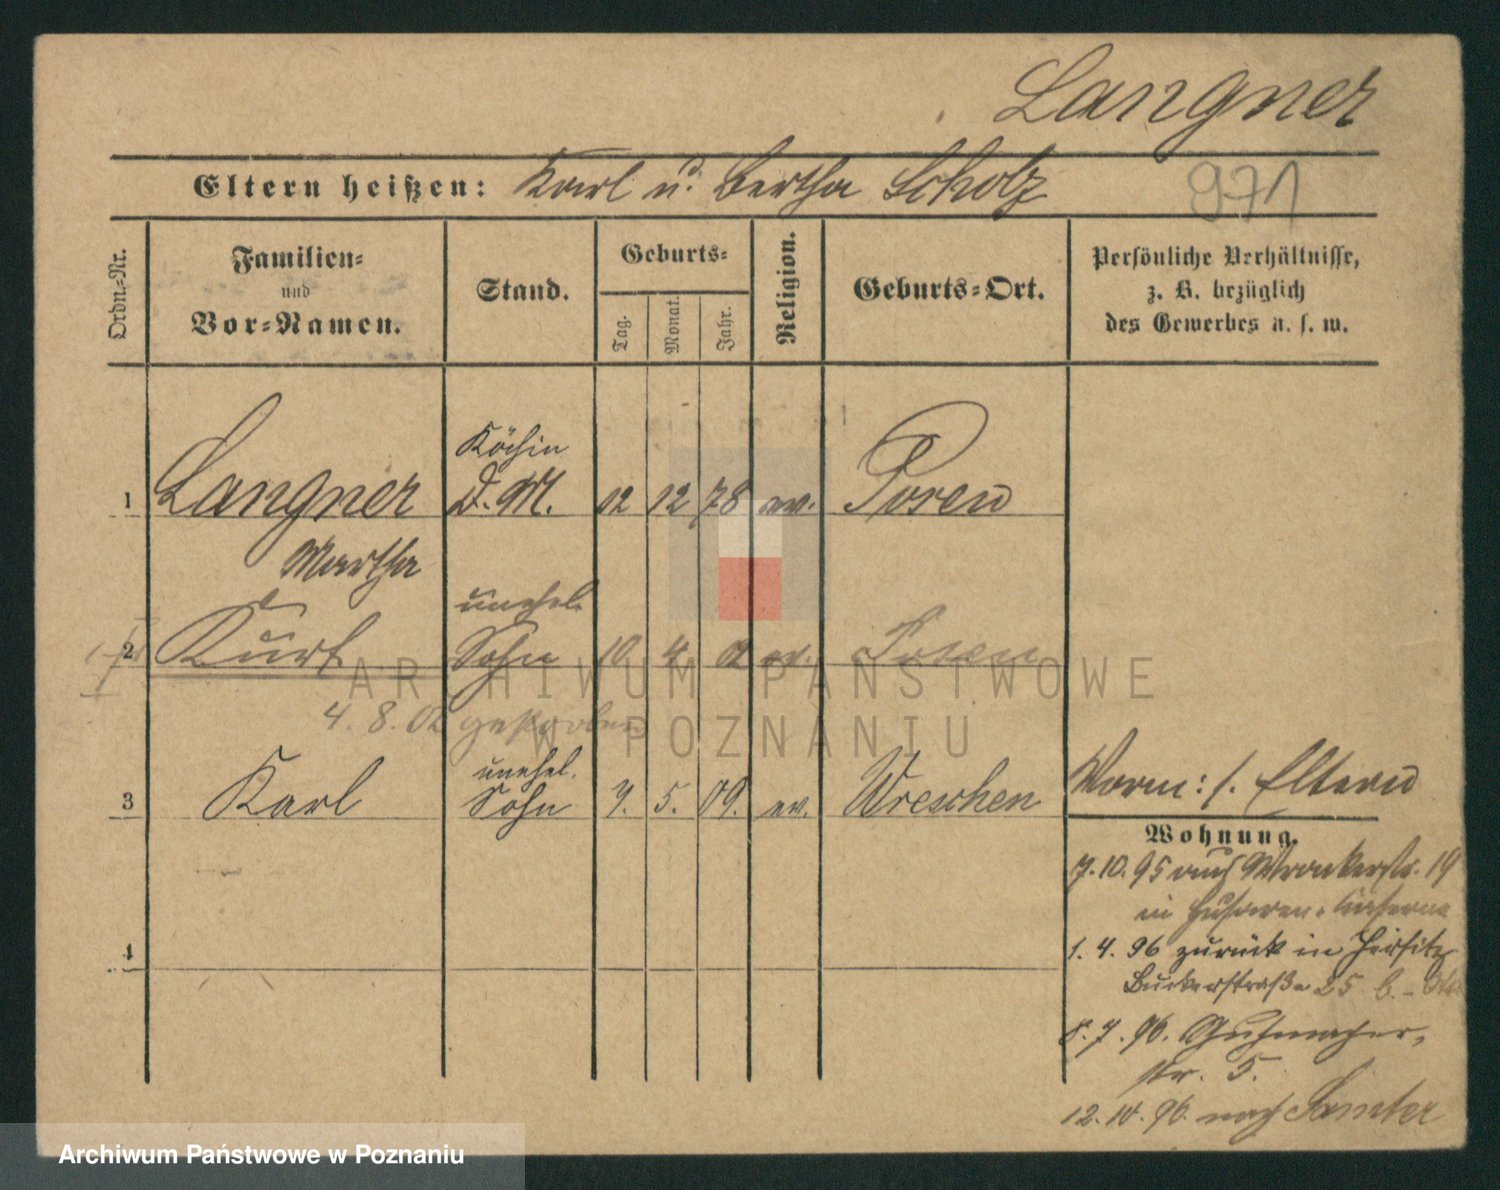 Langner
Eltern heißen: Karl u. Bertha Scholz
971
Ordn.-Nr.
Familien-
und
Vor-Namen.
Stand.
Geburts-
Tag.
Monat.
Jahr.
Religion.
Geburts-Ort.
Persönliche Verhältnisse,
z. B. bezüglich
des Gewerbes u. s. w.
Köchin
1 Langner D. M. 12 12 78 ev. Posen
Martha
unehel.
2 Kurt Sohn 10 4 02 ev. Posen
4. 8. 02 gestorben
unehel.
3 Karl Sohn 7. 5. 09. ev. Wreschen
Vorm: s. Eltern
Wohnung.
7. 10. 95 auf Wronkerstr. 19
in Husaren-Kaserne
4
1. 4. 96 zurück in Jersitz
Bukerstraße 25 b.
8. 7. 96. Gutmacher-
str. 5.
12. 10. 96. nach Samter
ARCHIWUM PAŃSTWOWE
W POZNANIU
Archiwum Państwowe w Poznaniu